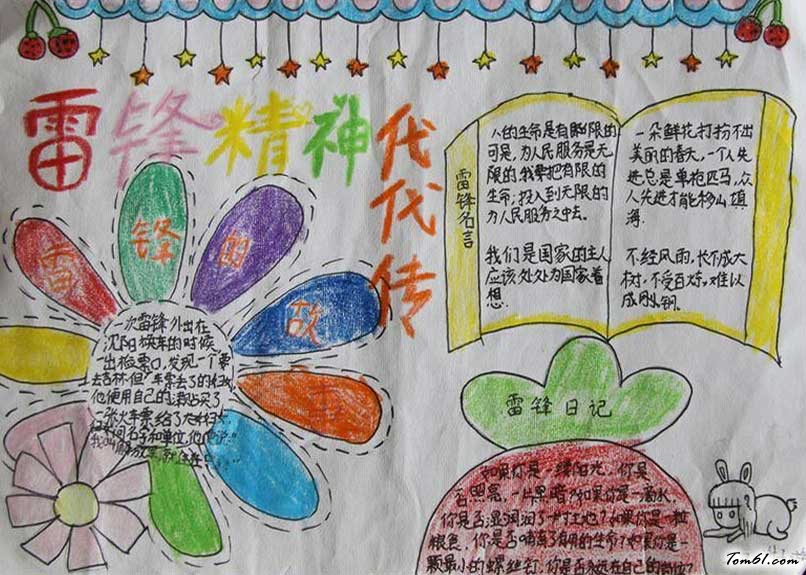 雷锋精神
代代传
雷锋的故事
一次雷锋外出在
沈阳换车的时候
一出检票口,发现一个
去吉林,但车票丢了
他使用自己的津贴买了
一张火车票给了大
雷锋名言
人的生命是有限的
可是,为人民服务是无
限的,我要把有限的
生命,投入到无限的
为人民服务之中去。
我们是国家的主人
应该处处为国家着
想
一朵鲜花打扮不出
美丽的春天,一个人先
进总是单枪匹马,众
人先进才能移山填
海
不经风雨,长不成大
树,不受百炼,难以
成钢
雷锋日记
如果你是一缕阳光,你是
否照亮一片黑暗?如果你是一滴水,
你是否湿润了一寸土地?如果你是一粒
粮食,你是否哺育了有用的生命?如果你是一
颗最小的螺丝钉,你是否永远在自己的岗位?
Tom61.com